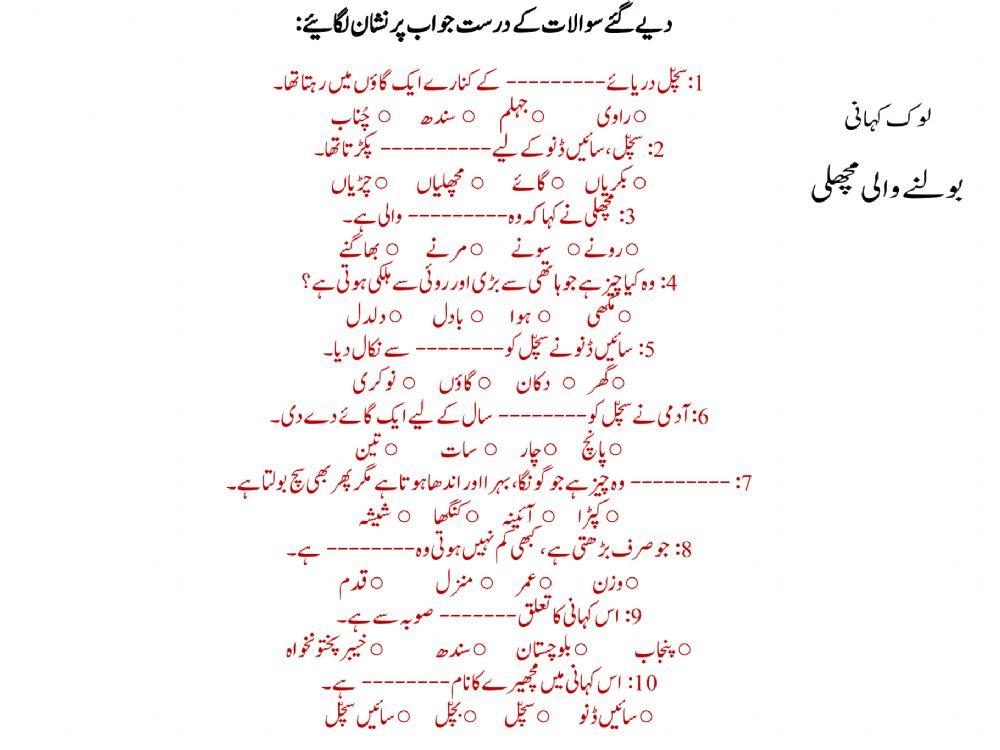 دیے گئے سوالات کے درست جواب پر نشان لگائیے:
1: سچّل دریائے --------- کے کنارے ایک گاؤں میں رہتا تھا۔
○ راوی ○ جہلم ○ سندھ ○ چُناب
2: سچّل، سائیں ڈنو کے لیے ---------- پکڑتا تھا۔
○ بکریاں ○ گائے ○ مچھلیاں ○ چڑیاں
3: مچھلی نے کہا کہ وہ --------- والی ہے۔
○ رونے ○ سونے ○ مرنے ○ بھاگنے
4: وہ کیا چیز ہے جو ہاتھی سے بڑی اور روئی سے ہلکی ہوتی ہے؟
○ مکھی ○ ہوا ○ بادل ○ دلدل
5: سائیں ڈنو نے سچّل کو -------- سے نکال دیا۔
○ گھر ○ دکان ○ گاؤں ○ نوکری
6: آدمی نے سچّل کو -------- سال کے لیے ایک گائے دے دی۔
○ پانچ ○ چار ○ سات ○ تین
7: --------- وہ چیز ہے جو گونگا، بہرا اور اندھا ہوتا ہے مگر پھر بھی سچ بولتا ہے۔
○ کپڑا ○ آئینہ ○ کنگھا ○ شیشہ
8: جو صرف بڑھتی ہے، کبھی کم نہیں ہوتی وہ -------- ہے۔
○ وزن ○ عمر ○ منزل ○ قدم
9: اس کہانی کا تعلق ------- صوبہ سے ہے۔
○ پنجاب ○ بلوچستان ○ سندھ ○ خیبر پختونخواہ
10: اس کہانی میں مچھیرے کا نام -------- ہے۔
○ سائیں ڈنو ○ سچّل ○ بچّل ○ سائیں سچّل
لوک کہانی
بولنے والی مچھلی